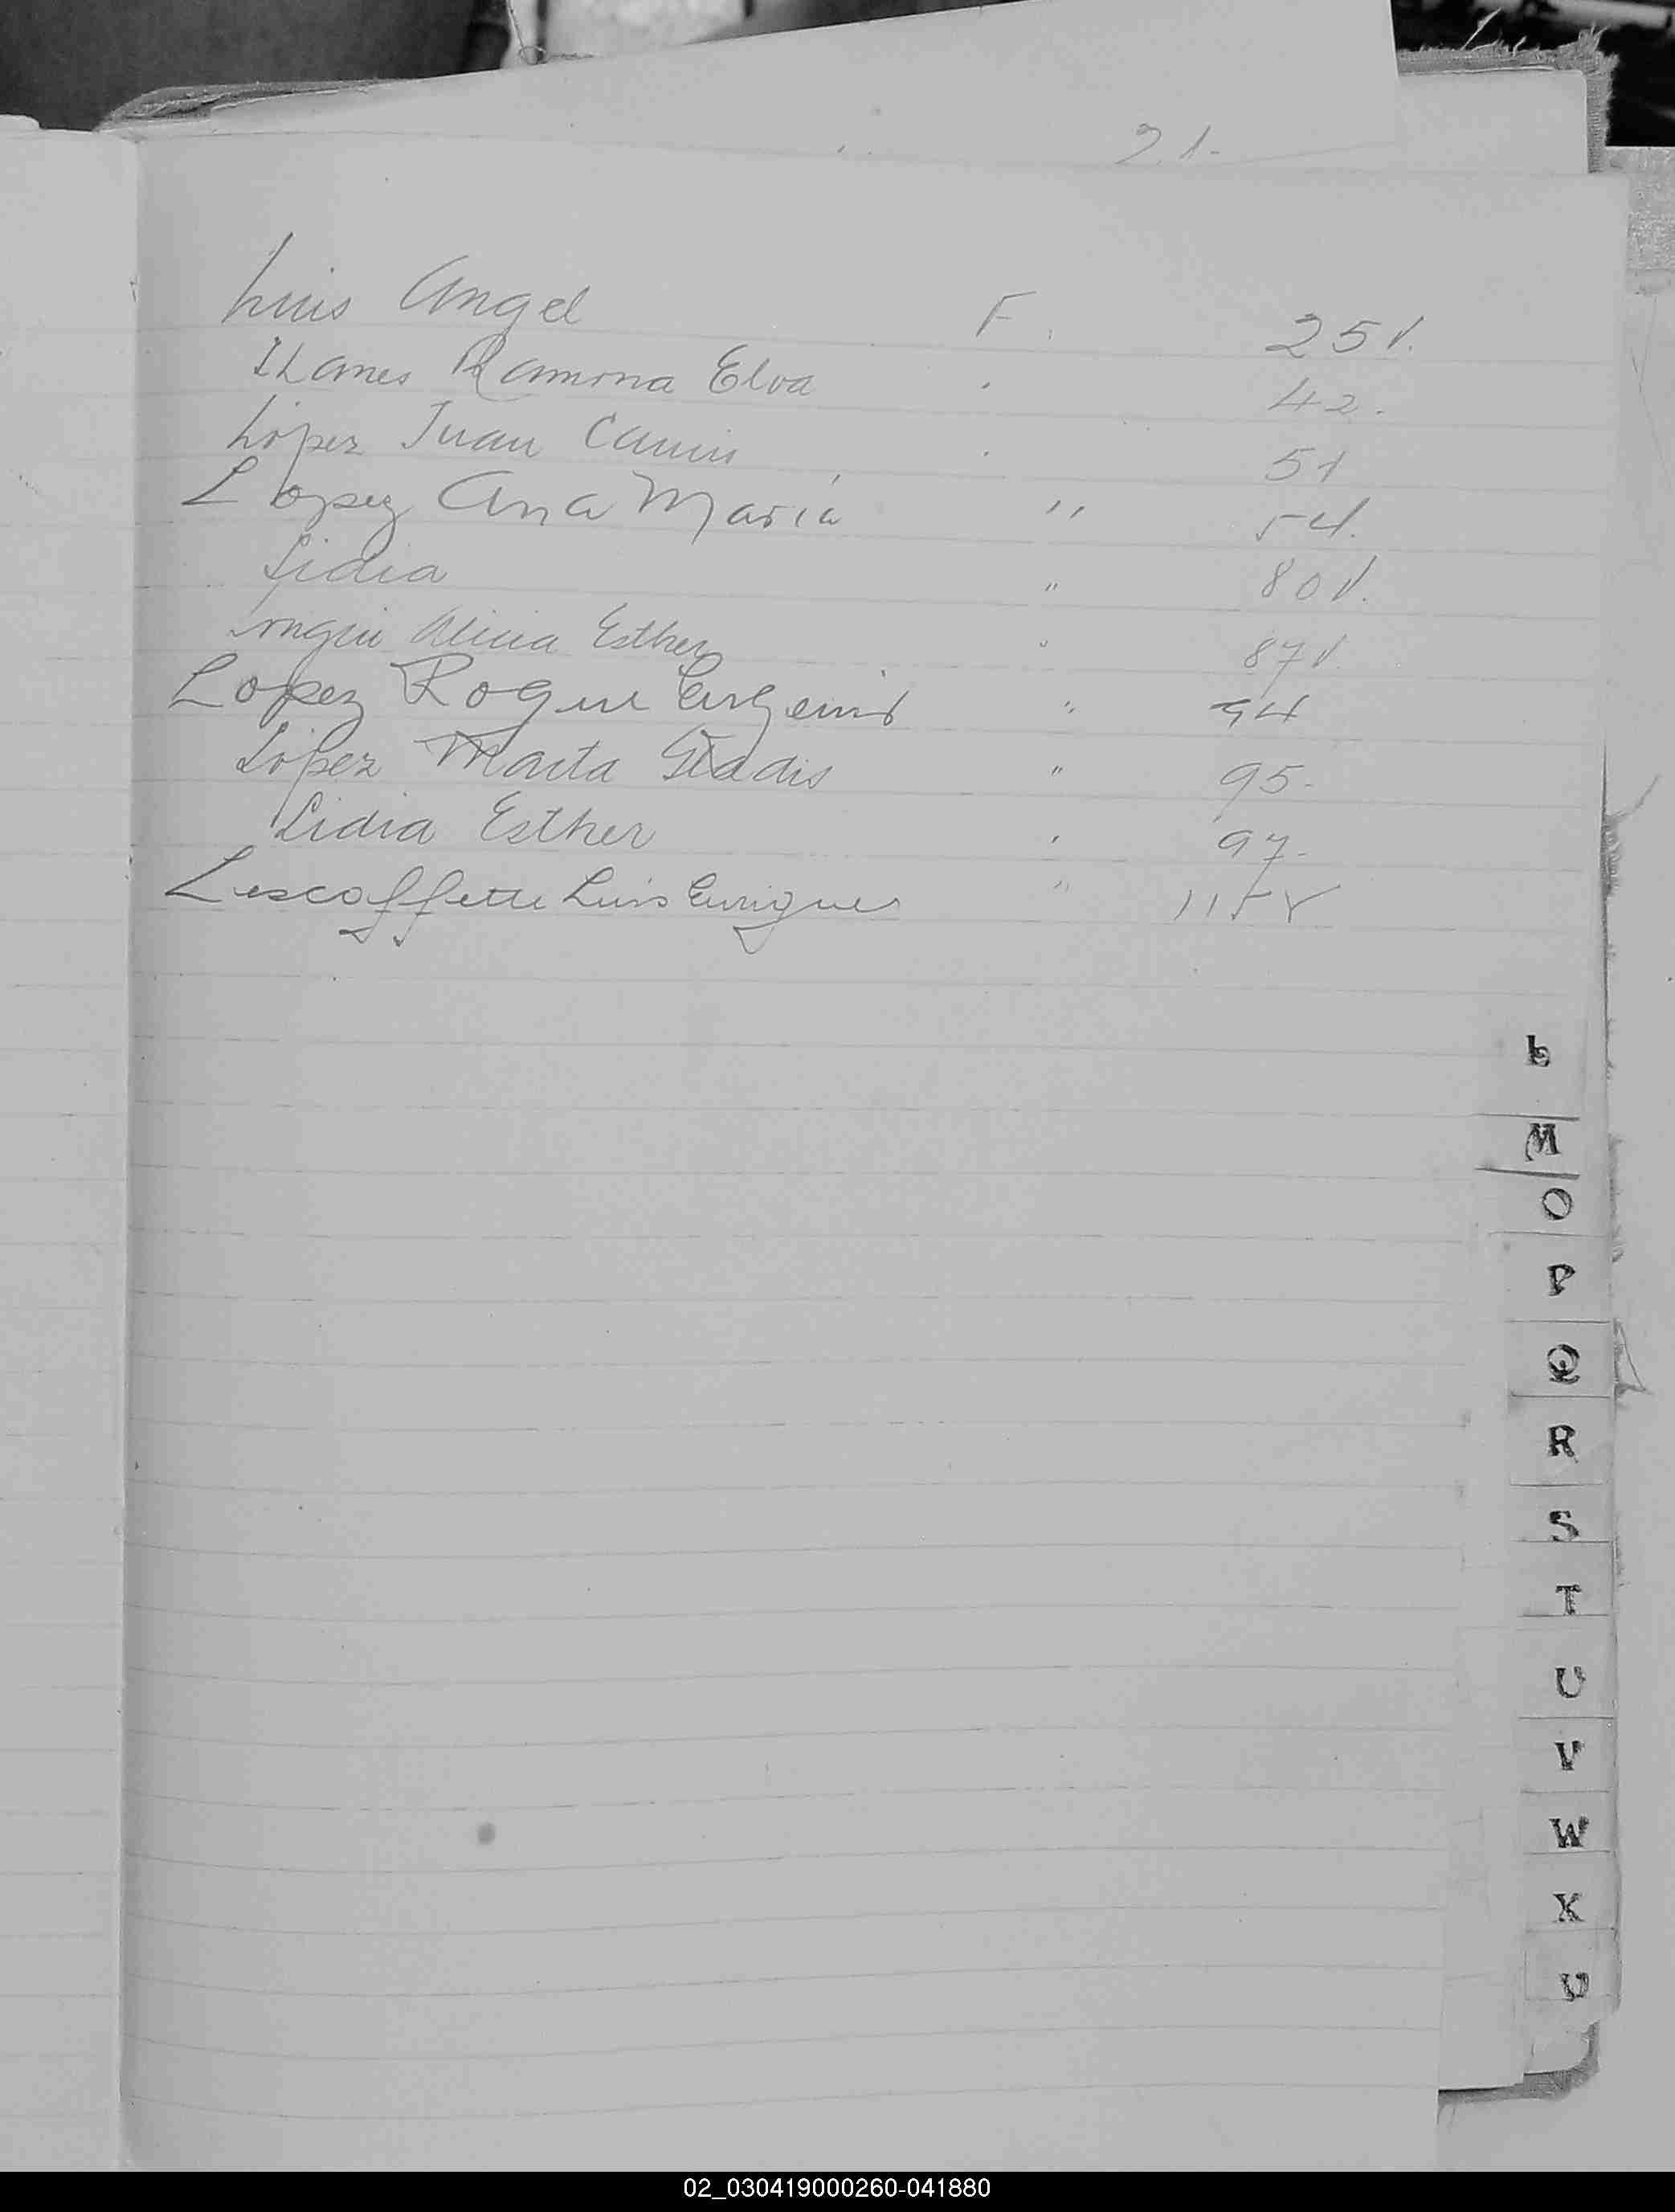 21.
Luis Angel F. 25 V.
Llanes Ramona Elva " 42.
López Juan " 51
Lopez Ana Maria " 54.
Lidia " 80 V.
Alicia Esther " 87 V
Lopez Roque Eugenio " 94
López Marta Gladis " 95.
Lidia Esther " 97.
Lescaffette Luis Enrique " 115 V
L
M
O
P
Q
R
S
T
U
V
W
X
02_030419000260-041880